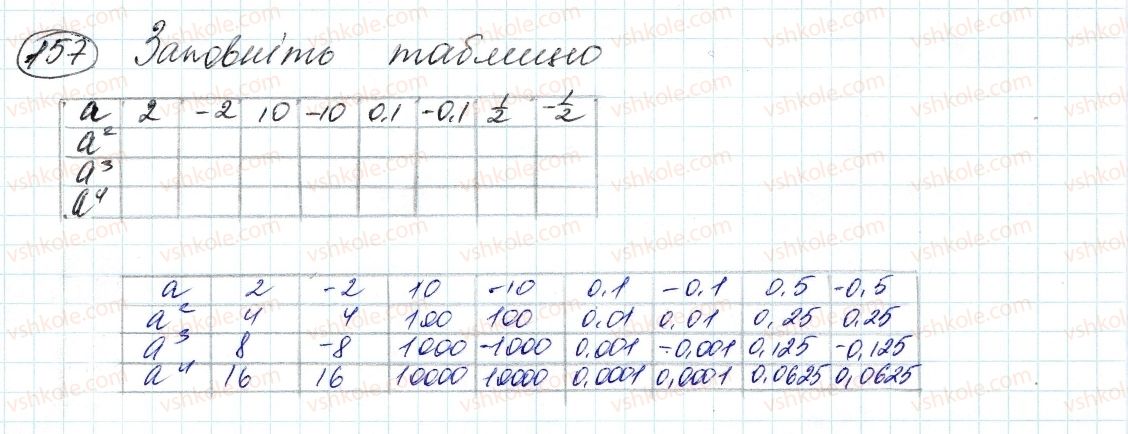 157 Заповніть таблицю
a 2 -2 10 -10 0,1 -0,1 1/2 -1/2
a²
a³
a⁴
a 2 -2 10 -10 0,1 -0,1 0,5 -0,5
a² 4 4 100 100 0,01 0,01 0,25 0,25
a³ 8 -8 1000 -1000 0,001 -0,001 0,125 -0,125
a⁴ 16 16 10000 10000 0,0001 0,0001 0,0625 0,0625